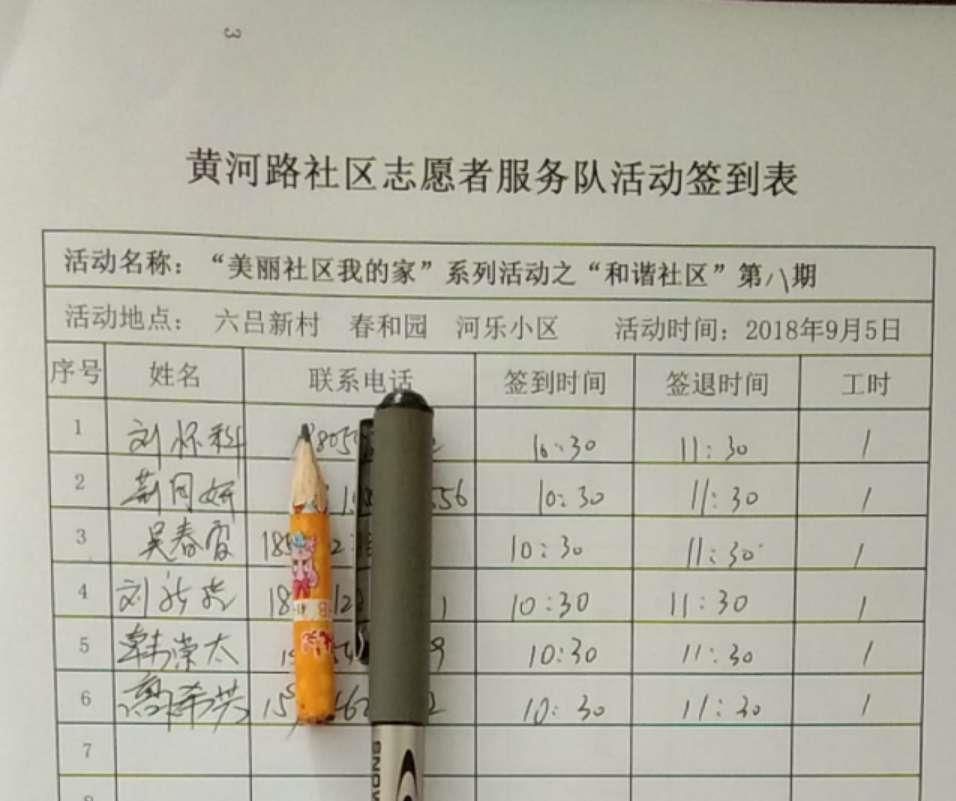 3
黄河路社区志愿者服务队活动签到表
活动名称：“美丽社区我的家”系列活动之“和谐社区”第八期
活动地点： 六吕新村 春和园 河乐小区 活动时间：2018年9月5日
序号 姓名 联系电话 签到时间 签退时间 工时
1 刘怀科 10:30 11:30 1
2 10:30 11:30 1
3 吴春霞 10:30 11:30 1
4 10:30 11:30 1
5 韩荣太 10:30 11:30 1
6 10:30 11:30 1
7
8